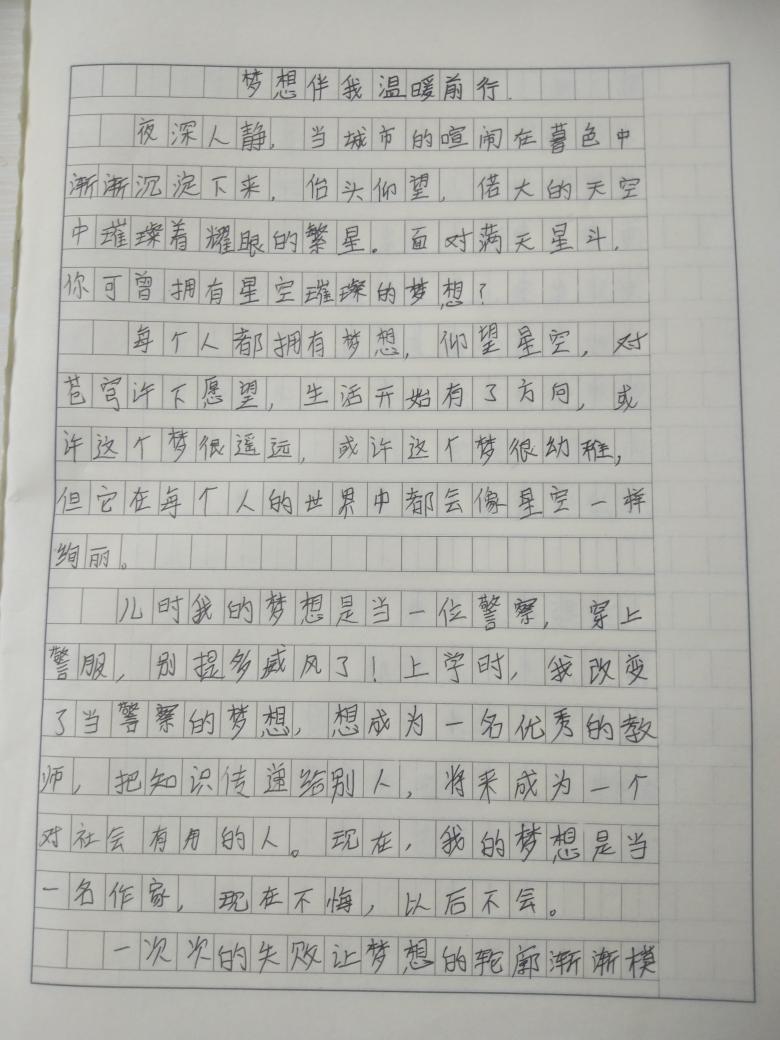 梦想伴我温暖前行.
夜深人静，当城市的喧闹在暮色中
渐渐沉淀下来，抬头仰望，偌大的天空
中璀璨着耀眼的繁星。面对满天星斗，
你可曾拥有星空璀璨的梦想？
每个人都拥有梦想，仰望星空，对
苍穹许下愿望，生活开始有了方向，或
许这个梦很遥远，或许这个梦很幼稚，
但它在每个人的世界中都会像星空一样
绚丽。
儿时我的梦想是当一位警察，穿上
警服，别提多威风了！上学时，我改变
了当警察的梦想，想成为一名优秀的教
师，把知识传递给别人，将来成为一个
对社会有用的人。现在，我的梦想是当
一名作家，现在不悔，以后不会。
一次次的失败让梦想的轮廓渐渐模